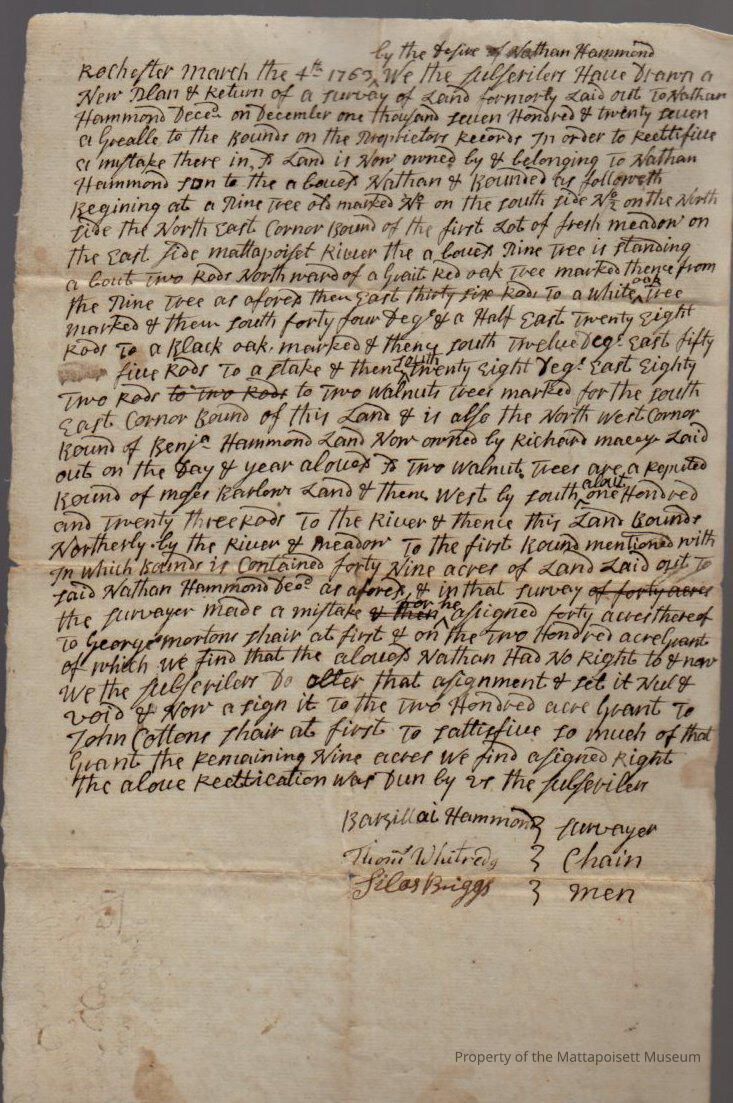 by the desire of Nathan Hammond
Rochester March the 4th 1763 We the subscribers Have Drawn a
New Plan & Return of a survey of Land formorly Laid out To Nathan
Hammond Decd on December one thousand seven Hundred & twenty seven
a Greable to the Bounds on the Proprietors Records In order to Rettifiie
a mistake there in, sd Land is Now owned by & belonging To Nathan
Hammond son to the a bovesd Nathan & Bounded as followeth
Begining at a Pine Tree old marked on the south side on the North
side the North East Cornor Bound of the first Lot of fresh meadow on
the East side mattapoiset River the a bovesd Pine Tree is standing
a bout Two Rods North ward of a Grait Red oak Tree marked thence from
the Pine Tree as aforesd then East thirty six Rods To a white oak Tree
marked & then south forty four Degs & a Half East Twenty Eight
Rods To a Black oak, marked & thenc south Twelve Degs East fifty
five Rods To a stake & thenc south Twenty Eight Degs East Eighty
Two Rods to two Rods to Two Walnuts Trees marked for the south
East Cornor Bound of this Land & is also the North West Cornor
Bound of Benja Hammond Land Now owned by Richard Laid
out on the Day & year abovesd sd Two Walnut Trees are a Reputed
Bound of moses Barlows Land & thenc West by south about one Hundred
and Twenty three Rods To the River & thence this Land Bounds
Northerly by the River & meadow To the first Bound mentioned with
In which Bounds is Contained forty Nine acres of Land Laid out To
said Nathan Hammond Decd as aforesd, & in that survey of forty acres
the survayer made a mistake & then for he asigned forty acres thereof
To George mortons shair at first & on the Two Hundred acre Grant
of which we find that the abovesd Nathan Had No Right to & now
We the subscribers Do alter that asignment & set it Nul &
void & Now a sign it To the Two Hundred acre Grant To
John Cottons shair at first To sattisfiie so much of that
Grant the Remaining Nine acres we find asigned Right
the above Rettication was Dun by us the subscribers
BarZillai Hammond } survayer
Thoms Whitredg } Chain
Silas Briggs } men
Property of the Mattapoisett Museum